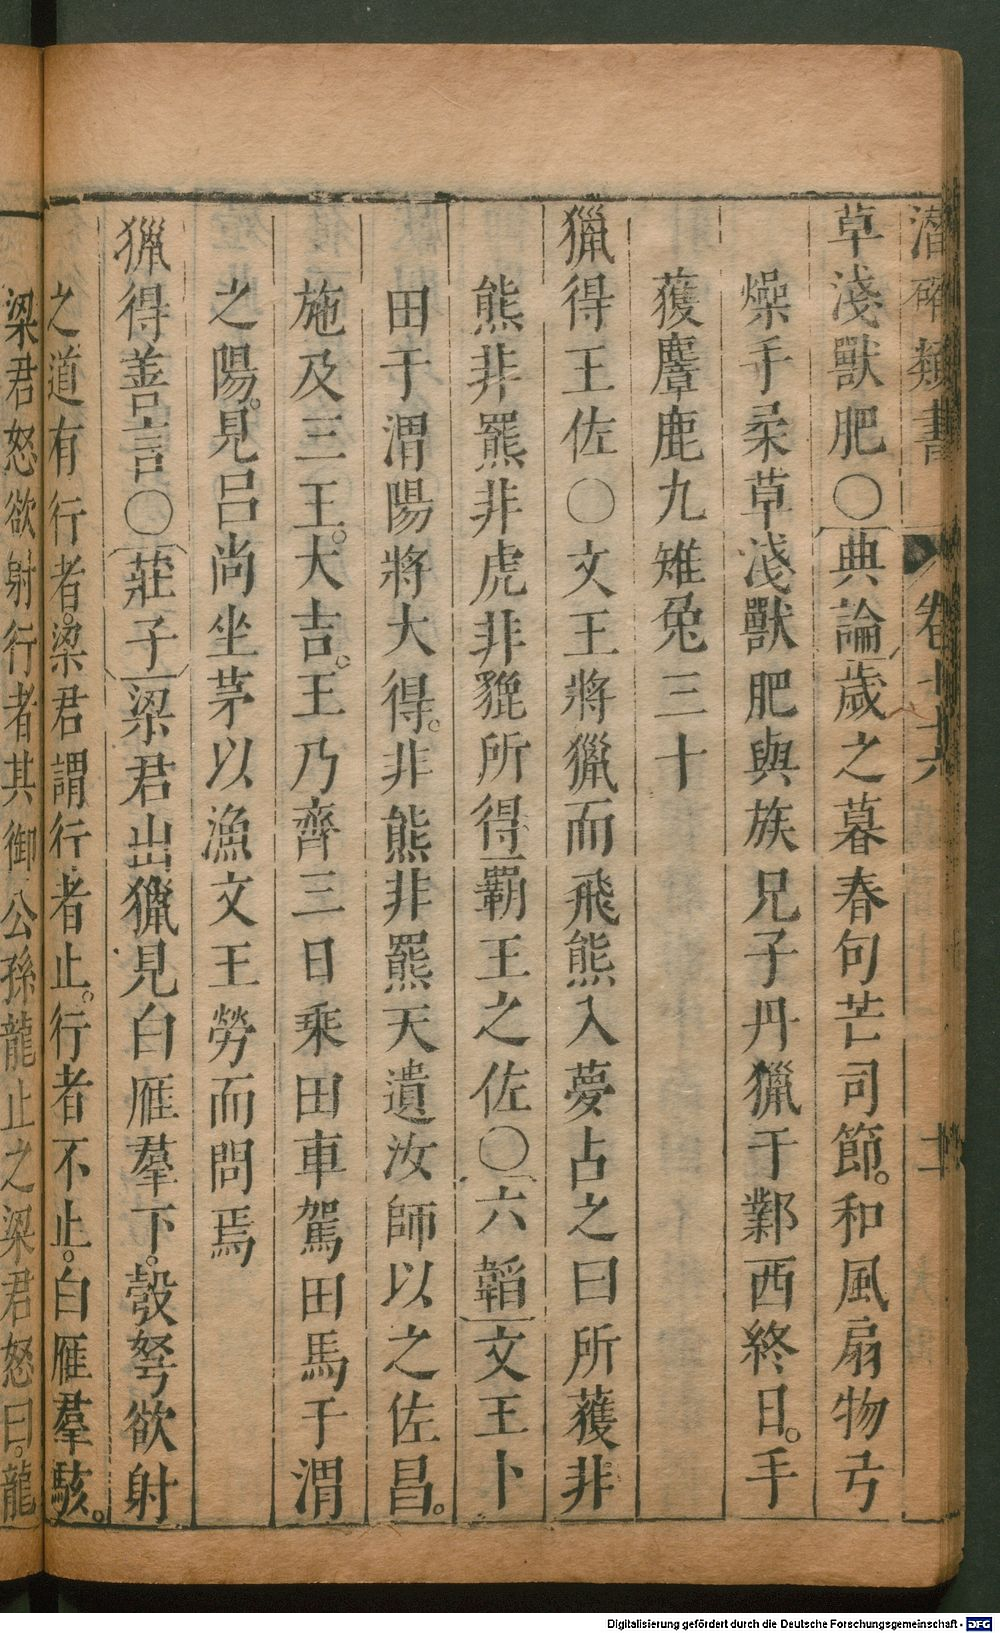 潛確類書 卷七十六 二
草淺獸肥〇典論歲之暮春句芒司節。和風扇物弓
燥手柔草淺獸肥與族兄子丹獵于鄴西終日。手
獲麞鹿九雉兔三十
獵得王佐〇文王將獵而飛熊入夢占之曰所獲非
熊非羆非虎非貔所得霸王之佐〇六韜文王卜
田于渭陽將大得。非熊非羆天遺汝師以之佐昌。
施及三王。大吉。王乃齊三日乘田車駕田馬于渭
之陽。見呂尚坐茅以漁文王勞而問焉
獵得善言〇莊子梁君出獵見白雁羣下。彀弩欲射
之道有行者。梁君謂行者止。行者不止。白雁羣駭。
梁君怒欲射行者其御公孫龍止之梁君怒曰。龍
Digitalisierung gefördert durch die Deutsche Forschungsgemeinschaft - DFG